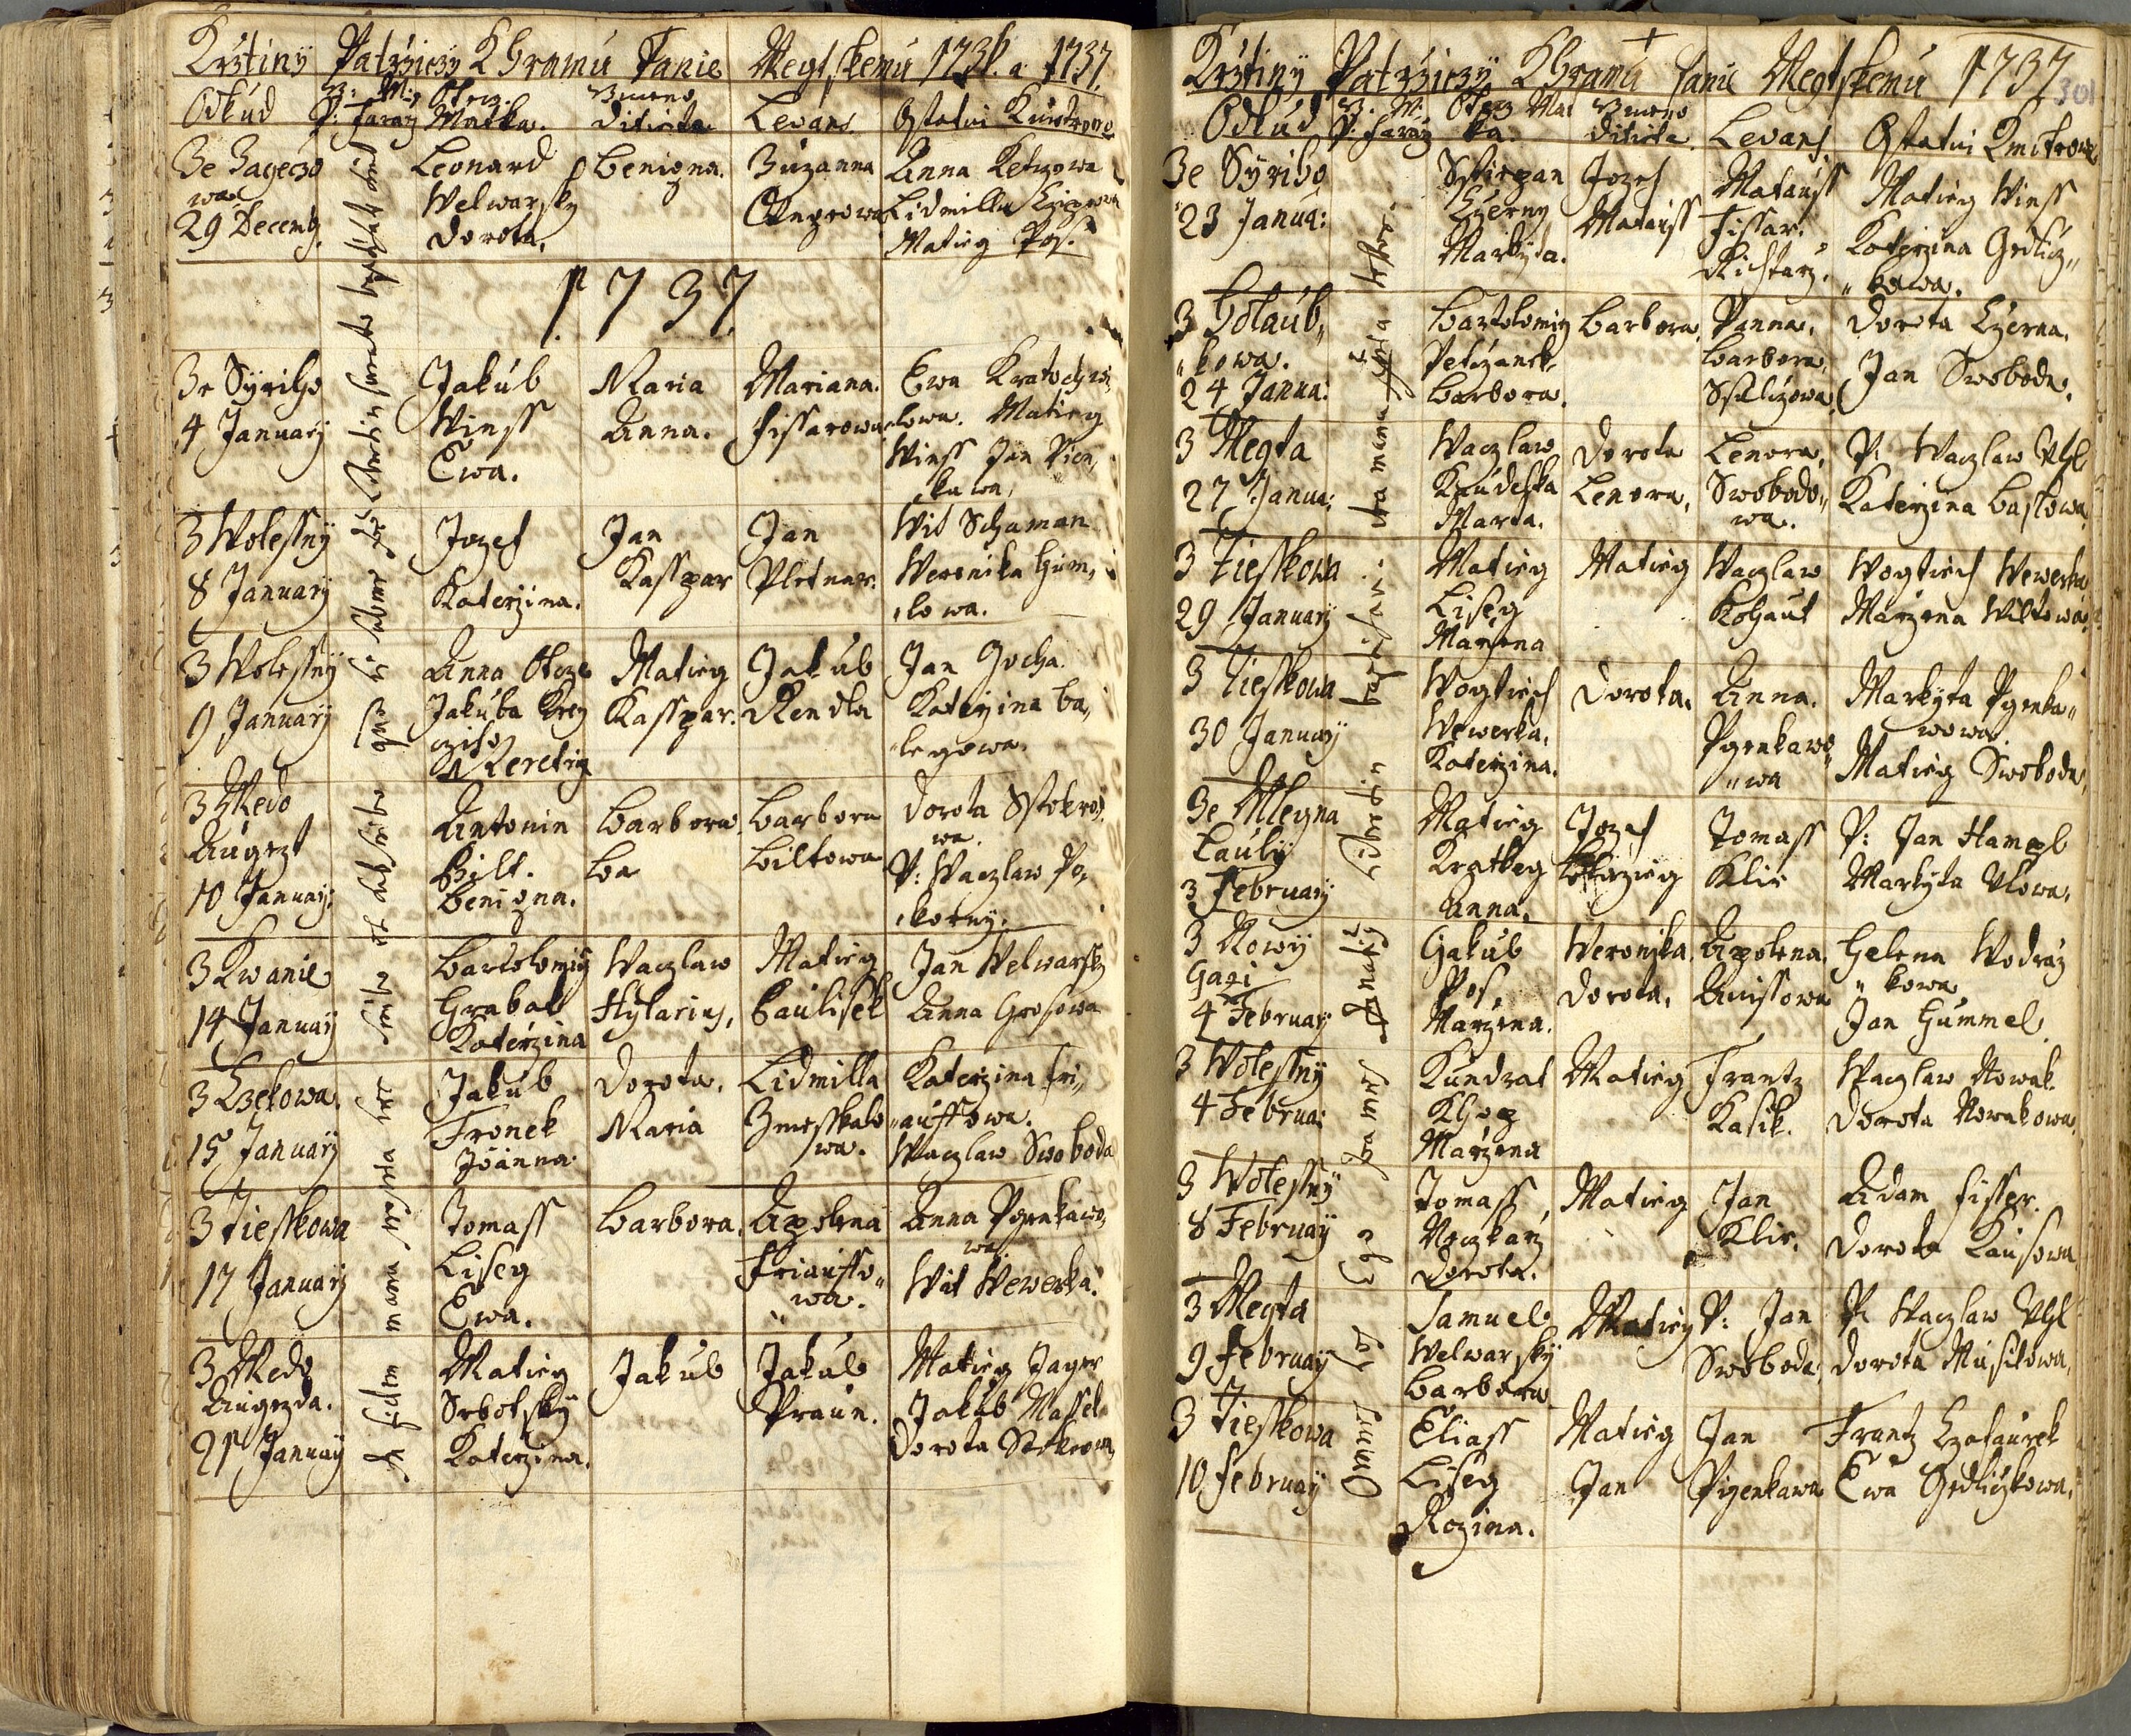 Krztiny Patrziczy K Chramu Fanie Megtskemu 1736. a 1737.
Odkud
P: Faraz
Otecz.
Matka.
Gmeno
Ditiete
Levans
Ostatni Kmotrove
Ze Zageczo
wa
29 Decemb.
Leonard
Welwarsky
Dorota.
Benigna.
Zuzanna
Anna
Lidmilla
Matieg Pos.
1737
Ze Syriho
4 January
Jakub
Winss
Ewa.
Maria
Anna.
Mariana.
Fissarowa
Ewa Kratochwi,,
lowa. Matieg
Winss Jan Pien,,
kawa,
Z Wolessny
8 January
Jozef
Katerzina.
Jan
Kasspar
Jan
Pletnar.
Wit Schaman
Weronika Hum,,
lowa.
Z Wolessny
9 January
Anna Otecz
Jakuba
Matieg
Kasspar.
Jakub
Rendla
Jan Jocha.
Katerzina Ba,,
legowa.
Z Medo
Augezt
10 January
Antonin
Bilt.
Benigna.
Barbora
Ba
Barbora
Biltowa
Dorota Sstokro,,
wa.
P: Waczlaw Po,,
korny.
Z Kwanie
14 January
Bartolomig
Hrabal
Katerzina
Waczlaw
Hylarius,
Matieg
Paulisek
Jan Welwarsky
Anna Grosowa
15 January
Jakub
Fronek
Joanna
Dorota.
Maria
Lidmilla
Zmesskalo
wa.
Katerzina Fri,,
aussowa.
Waczlaw Swoboda
Z Tiesskowa
17 January
Tomass
Liseg
Ewa.
Barbora.
Apolena
Friausso,,
wa.
Anna Pgenkawo,,
wa
Wit Wewerka.
Z Medo
Augezda.
21 January
Matieg
Srbotsky
Katerzina.
Jakub
Jakub
Praun.
Matieg Jager
Jakub Massel
Dorota Stokrowa
In fidem manu propria hec scribo et subscribo
Krztiny Patrziczy K Chramu Fanie Megtskemu 1737
301
Odkud
P: Faraz
Otecz Mat
ka.
Gmeno
Ditiete.
Levans
Ostatni Kmotrowe
Ze Syriho
23 Janua:
Sstiepan
Czerny
Markyta.
Jozef
Matauss
Matauss
Fissar.
Richtarz.
Matieg Winss
Katerzina Gedlicz,,
kowa.
Z Holaub,,
kowa.
24 Janua:
Bartolomig
Petrzanek
Barbora.
Barbora.
Panna.
Barbora,
Sstliczowa
Dorota Czerna.
Jan Swoboda.
Z Megta
27 Janua:
Waczlaw
Kaudelka
Marta.
Dorota
Lenora.
Lenora,
Swobodo,,
wa.
P: Waczlaw Uhl
Katerzina Bastowa
Z Tiesskowa
29 January
Matieg
Liseg
Marzena
Matieg
Waczlaw
Kohaut
Wogtiech Wewerka
Marzena Wiltowa
Z Tiesskowa
30 January
Wogtiech
Wewerka,
Katerzina.
Dorota.
Anna.
Pgenkawo,,
wa
Markyta Pgenka,,
wowa
Matieg Swoboda.
Ze Mlegna
Lauky
3 February
Matieg
Kratkeg
Anna.
Jozef
Tomass
Klir
P: Jan Hampl
Markyta Uhlowa.
Z Nowy
Gazi
4 February
Gakub
Pos,
Marzena.
Weronika.
Dorota.
Apolena.
Anissowa
Helena Wodraz
kowa
Jan Hummel.
Z Wolessny
4 Februa:
Kundrat
Marzena
Matieg
Frantz
Kasik.
Waczlaw Nowak.
Dorota Nowakowa.
Z Wolessny
8 February
Tomass
Noczkarz
Dorota.
Matieg
Jan
Klir.
Adam Fisser.
Dorota Kausowa
Z Megta
9 February
Samuel
Welwarsky
Barbora
Matieg
P: Jan
Swoboda.
P: Waczlaw Uhl
Dorota Musilowa,
Z Tiesskowa
10 February
Eliass
Liseg
Rozina.
Matieg
Jan
Jan
Pigenkawa
Frantz Czataurek
Ewa Gedliczkowa.
Omnes hos Ego Joannes Ignatius